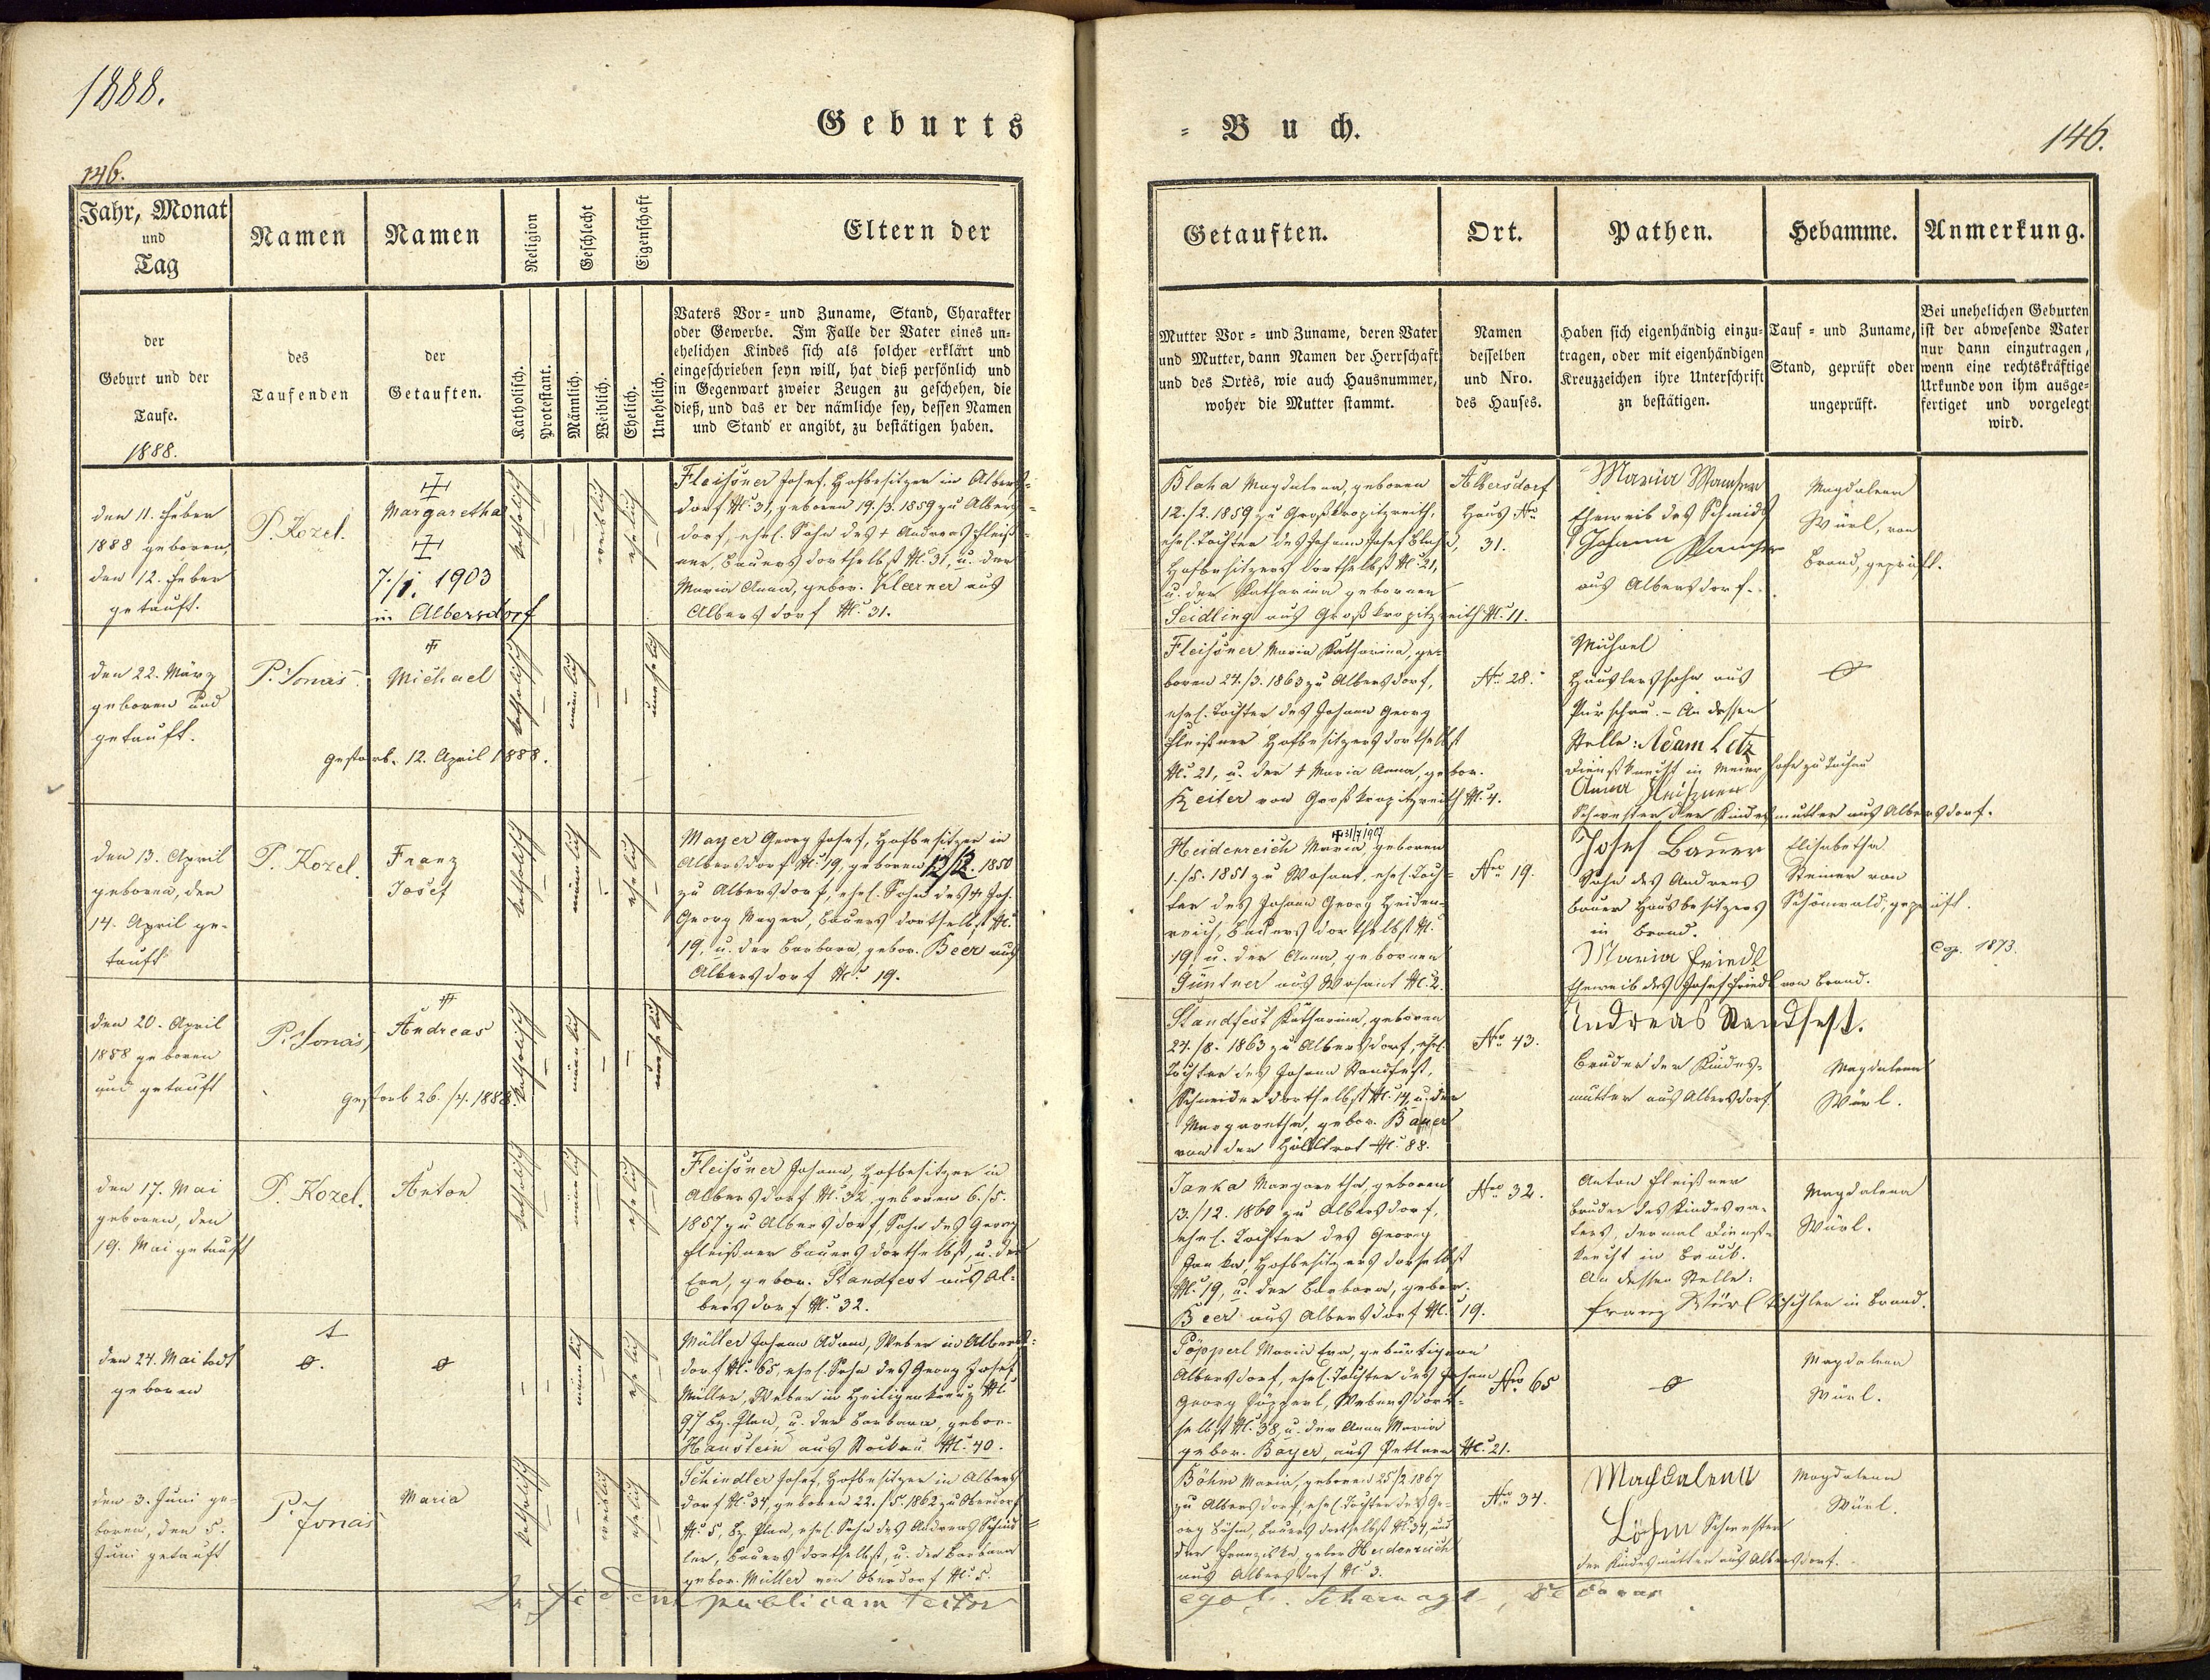 1888.
Geburts
146.
Jahr, Monat
und
Tag
Namen
Namen
Religion
Geschlecht
Eigenschaft
Eltern der
der
Geburt und der
Taufe.
1888.
des
Taufenden
der
Getauften.
Katholisch.
Protestant.
Männlich.
Weiblich.
Ehelich.
Unehelich.
Vaters Vor- und Zuname, Stand, Charakter
oder Gewerbe. Im Falle der Vater eines un-
ehelichen Kindes sich als solcher erklärt und
eingeschrieben seyn will, hat dieß persönlich und
in Gegenwart zweier Zeugen zu geschehen, die
dieß, und das er der nämliche sey, dessen Namen
und Stand er angibt, zu bestätigen haben.
den 11. Feber
1888 geboren,
den 12. Feber
getauft.
P. Kozel.
Margaretha
7./1. 1903
in Albersdorf
katholisch
weiblich
ehelich
Fleißner Josef, Hofbesitzer in Albers-
dorf N. 31, geboren 19./3. 1859 zu Albers-
dorf, ehel. Sohn des † Andreas Fleiß-
ner, Bauers dortselbst N. 31, u. der
Maria Anna, gebor. Klerner aus
Albersdorf N. 31.
den 22. März
geboren und
getauft.
P. Jonas
Michael
gestorb. 12. April 1888.
katholisch
männlich
unehelich
den 13. April
geboren, den
14. April ge-
tauft
P. Kozel.
Franz
Josef
katholisch
männlich
ehelich
Mayer Georg Josef, Hofbesitzer in
Albersdorf N. 19, geboren 12/2. 1850
zu Albersdorf, ehel. Sohn des † Joh.
Georg Mayer, Bauers dortselbst N.
19, u. der Barbara, gebor. Beer aus
Albersdorf N. 19.
den 20. April
1888 geboren
und getauft
P. Jonas
Andreas
gestorb 26./4. 1888.
katholisch
männlich
unehelich
den 17. Mai
geboren, den
19. Mai getauft
P. Kozel.
Anton
katholisch
männlich
ehelich
Fleißner Johann, Hofbesitzer in
Albersdorf N. 32, geboren 6./5.
1857 zu Albersdorf, Sohn des Georg
Fleißner Bauers dortselbst, u. der
Eva, gebor. Standfest aus Al-
bersdorf N. 32.
den 24. Mai todt
geboren
männlich
ehelich
Müller Johann Adam, Weber in Albers-
dorf N. 65, ehel. Sohn des Georg Josef
Müller, Weber in Heiligenkreuz N.
97 Bz. Plan, u. der Barbara, gebor.
Haustein aus Stockau N. 40.
den 3. Juni ge-
boren, den 5.
Juni getauft
P. Jonas
Maria
katholisch
weiblich
ehelich
Schindler Josef, Hofbesitzer in Albers-
dorf N. 34, geboren 22./5. 1862 zu Oberdorf
N. 5, Bz. Plan, ehel. Sohn des Andreas Schind-
ler, Bauers dortselbst, u. der Barbara
gebor. Müller von Oberdorf N. 5.
In fidem publicam testor
= Buch.
146.
Getauften.
Ort.
Pathen.
Hebamme.
Anmerkung.
Mutter Vor- und Zuname, deren Vater
und Mutter, dann Namen der Herrschaft
und des Ortes, wie auch Hausnummer,
woher die Mutter stammt.
Namen
desselben
und Nro.
des Hauses.
Haben sich eigenhändig einzu-
tragen, oder mit eigenhändigen
Kreuzzeichen ihre Unterschrift
zu bestätigen.
Tauf- und Zuname,
Stand, geprüft oder
ungeprüft.
Bei unehelichen Geburten
ist der abwesende Vater
nur dann einzutragen,
wenn eine rechtskräftige
Urkunde von ihm ausge-
fertiget und vorgelegt
wird.
Blaha Magdalena, geboren
12./2. 1859 zu Großkropitzreith,
ehel. Tochter des Johann Josef Blaha,
Hofbesitzers dortselbst N. 21,
u. der Katharina gebornen
Seidling aus Großkropitzreith N. 11.
Albersdorf
Haus No
31.
Maria
Eheweib des Schmids
Johann
aus Albersdorf.
Magdalena
Würl, von
Brand, geprüft.
Fleißner Maria Katharina, ge-
boren 24./3. 1863 zu Albersdorf,
ehel. Tochter des Johann Georg
Fleißner Hofbesitzers dortselbst
N. 21, u. der † Maria Anna, gebor.
Reiter von Großkropitzreith N. 4.
No 28.
Michael
Häuslerssohn aus
Purschau. - An dessen
Stelle: Adam Letz
Dienstknecht in Meierhofe zu Tachau
Anna Fleißner
Schwester der Kindesmutter aus Albersdorf.
31/7 1907
Heidenreich Maria, geboren
1./5. 1851 zu Wosant, ehel. Toch-
ter des Johann Georg Heiden-
reich, Bauers dortselbst N.
19, u. der Anna, gebornen
Güntner aus Wosant N. 2.
Nro 19.
Josef Bauer
Sohn des Andreas
Bauer Hausbesitzers
in Brand.
Maria Friedl
Eheweib des Josef Friedl von Brand.
Elisabetha
Steiner von
Schönwald, geprüft.
Cop. 1873.
Standfest Katharina, geboren
24./8. 1863 zu Albersdorf, ehel.
Tochter des Johann Standfest,
Schneider dortselbst N. 14, u. der
Margaretha, gebor. Bauer
von der N. 88.
No 43.
Andreas Standfest.
Bruder der Kindes-
mutter aus Albersdorf.
Magdalena
Würl.
Janka Margaretha, geboren
13./12. 1860 zu Albersdorf,
ehel. Tochter des Georg
Janka, Hofbesitzers dortselbst
N. 19, u. der Barbara, gebor.
Beer aus Albersdorf N. 19.
Nro 32.
Anton Fleißner
Bruder des Kindesva-
ters, dermal Dienst-
knecht in Bruck.
An dessen Stelle:
Franz Würl Tischler in Brand.
Magdalena
Würl.
Pöpperl Maria Eva, gebürtig von
Albersdorf, ehel. Tochter des Johann
Georg Pöpperl, Webers dort-
selbst N. 38, u. der Anna Maria
gebor. Bayer, aus N. 21.
Nro 65
Magdalena
Würl.
Böhm Maria, geboren 25/2 1867
zu Albersdorf, ehel. Tochter des Ge-
org Böhm, Bauers dortselbst N. 34, und
der Franziska, gebor. Heidenreich
aus Albersdorf N. 3.
No 34.
Magdalena
Böhm Schwester
der Kindesmutter aus Albersdorf.
Magdalena
Würl